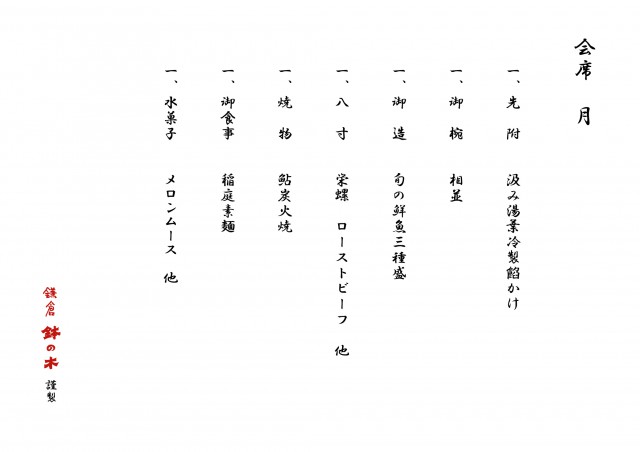 会席 月
一、先附 汲み湯葉冷製餡かけ
一、御椀 相並
一、御造 旬の鮮魚三種盛
一、八寸 栄螺 ローストビーフ 他
一、焼物 鮎炭火焼
一、御食事 稲庭素麺
一、水菓子 メロンムース 他
鎌倉 鉢の木 謹製